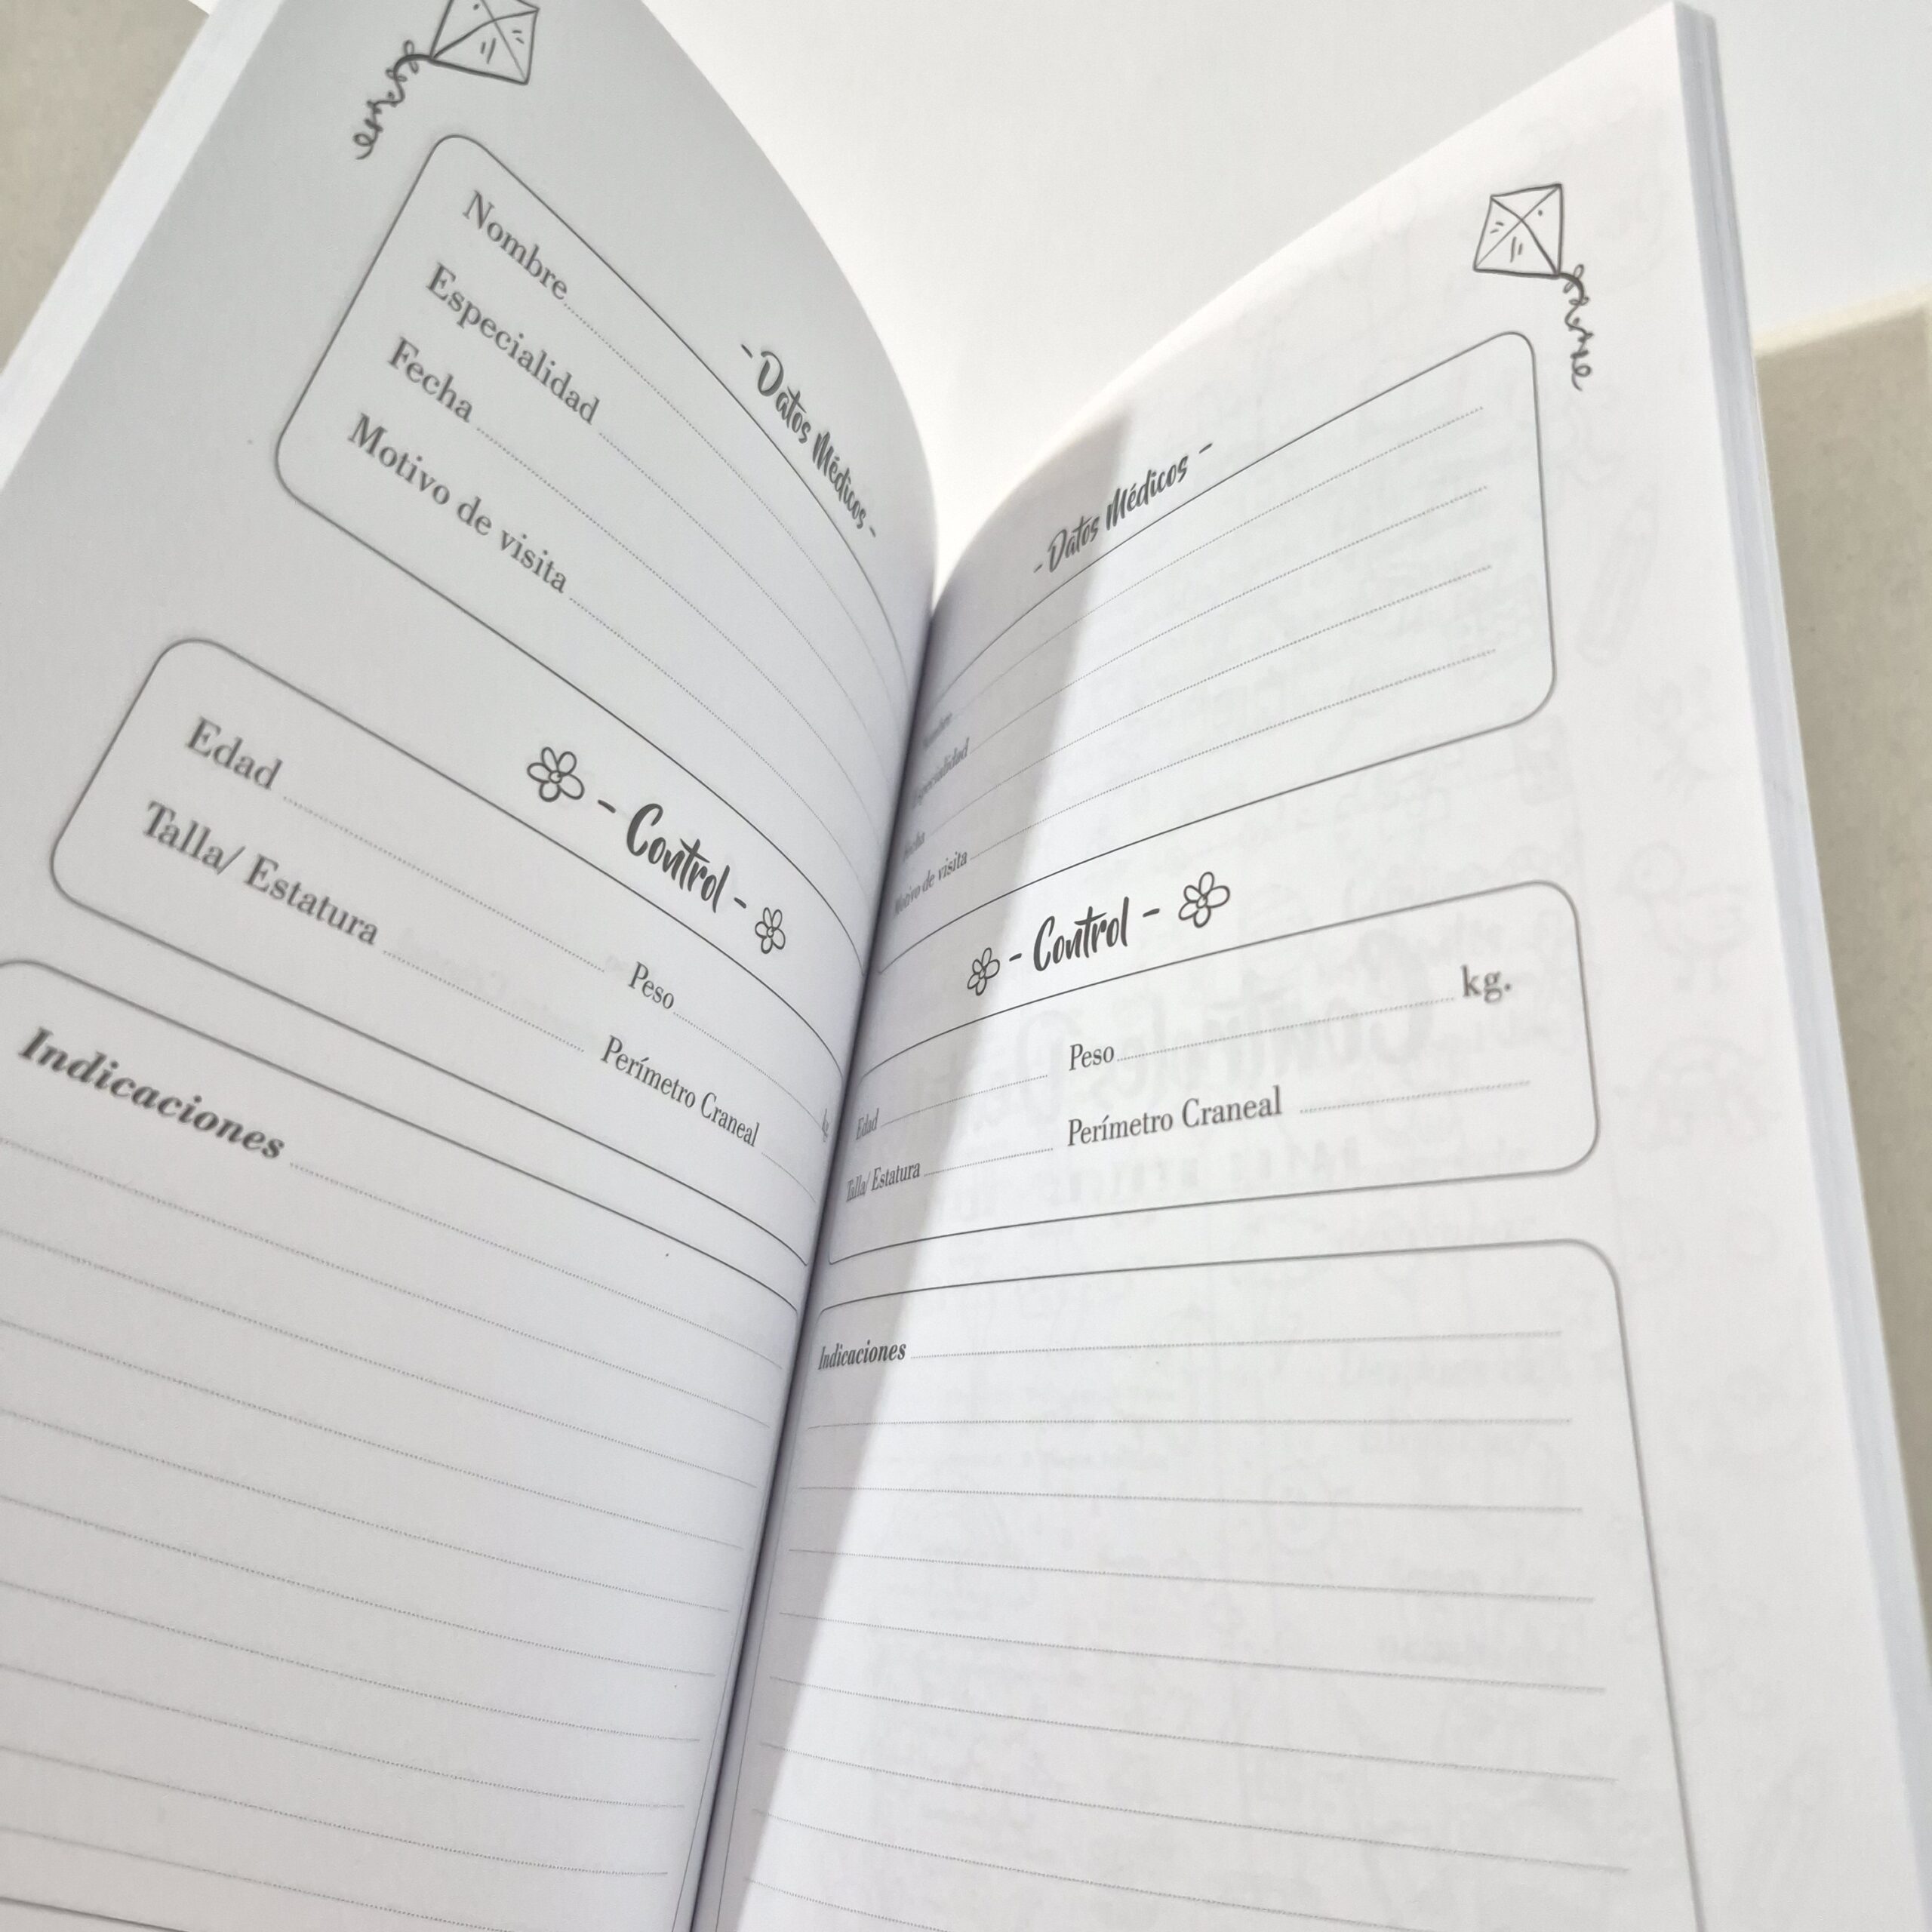 - Datos Médicos -
Nombre
Especialidad
Fecha
Motivo de visita
- Control -
Edad
Peso
kg.
Talla/ Estatura
Perímetro Craneal
Indicaciones
- Datos Médicos -
Nombre
Especialidad
Fecha
Motivo de visita
- Control -
Edad
Peso
kg.
Talla/ Estatura
Perímetro Craneal
Indicaciones